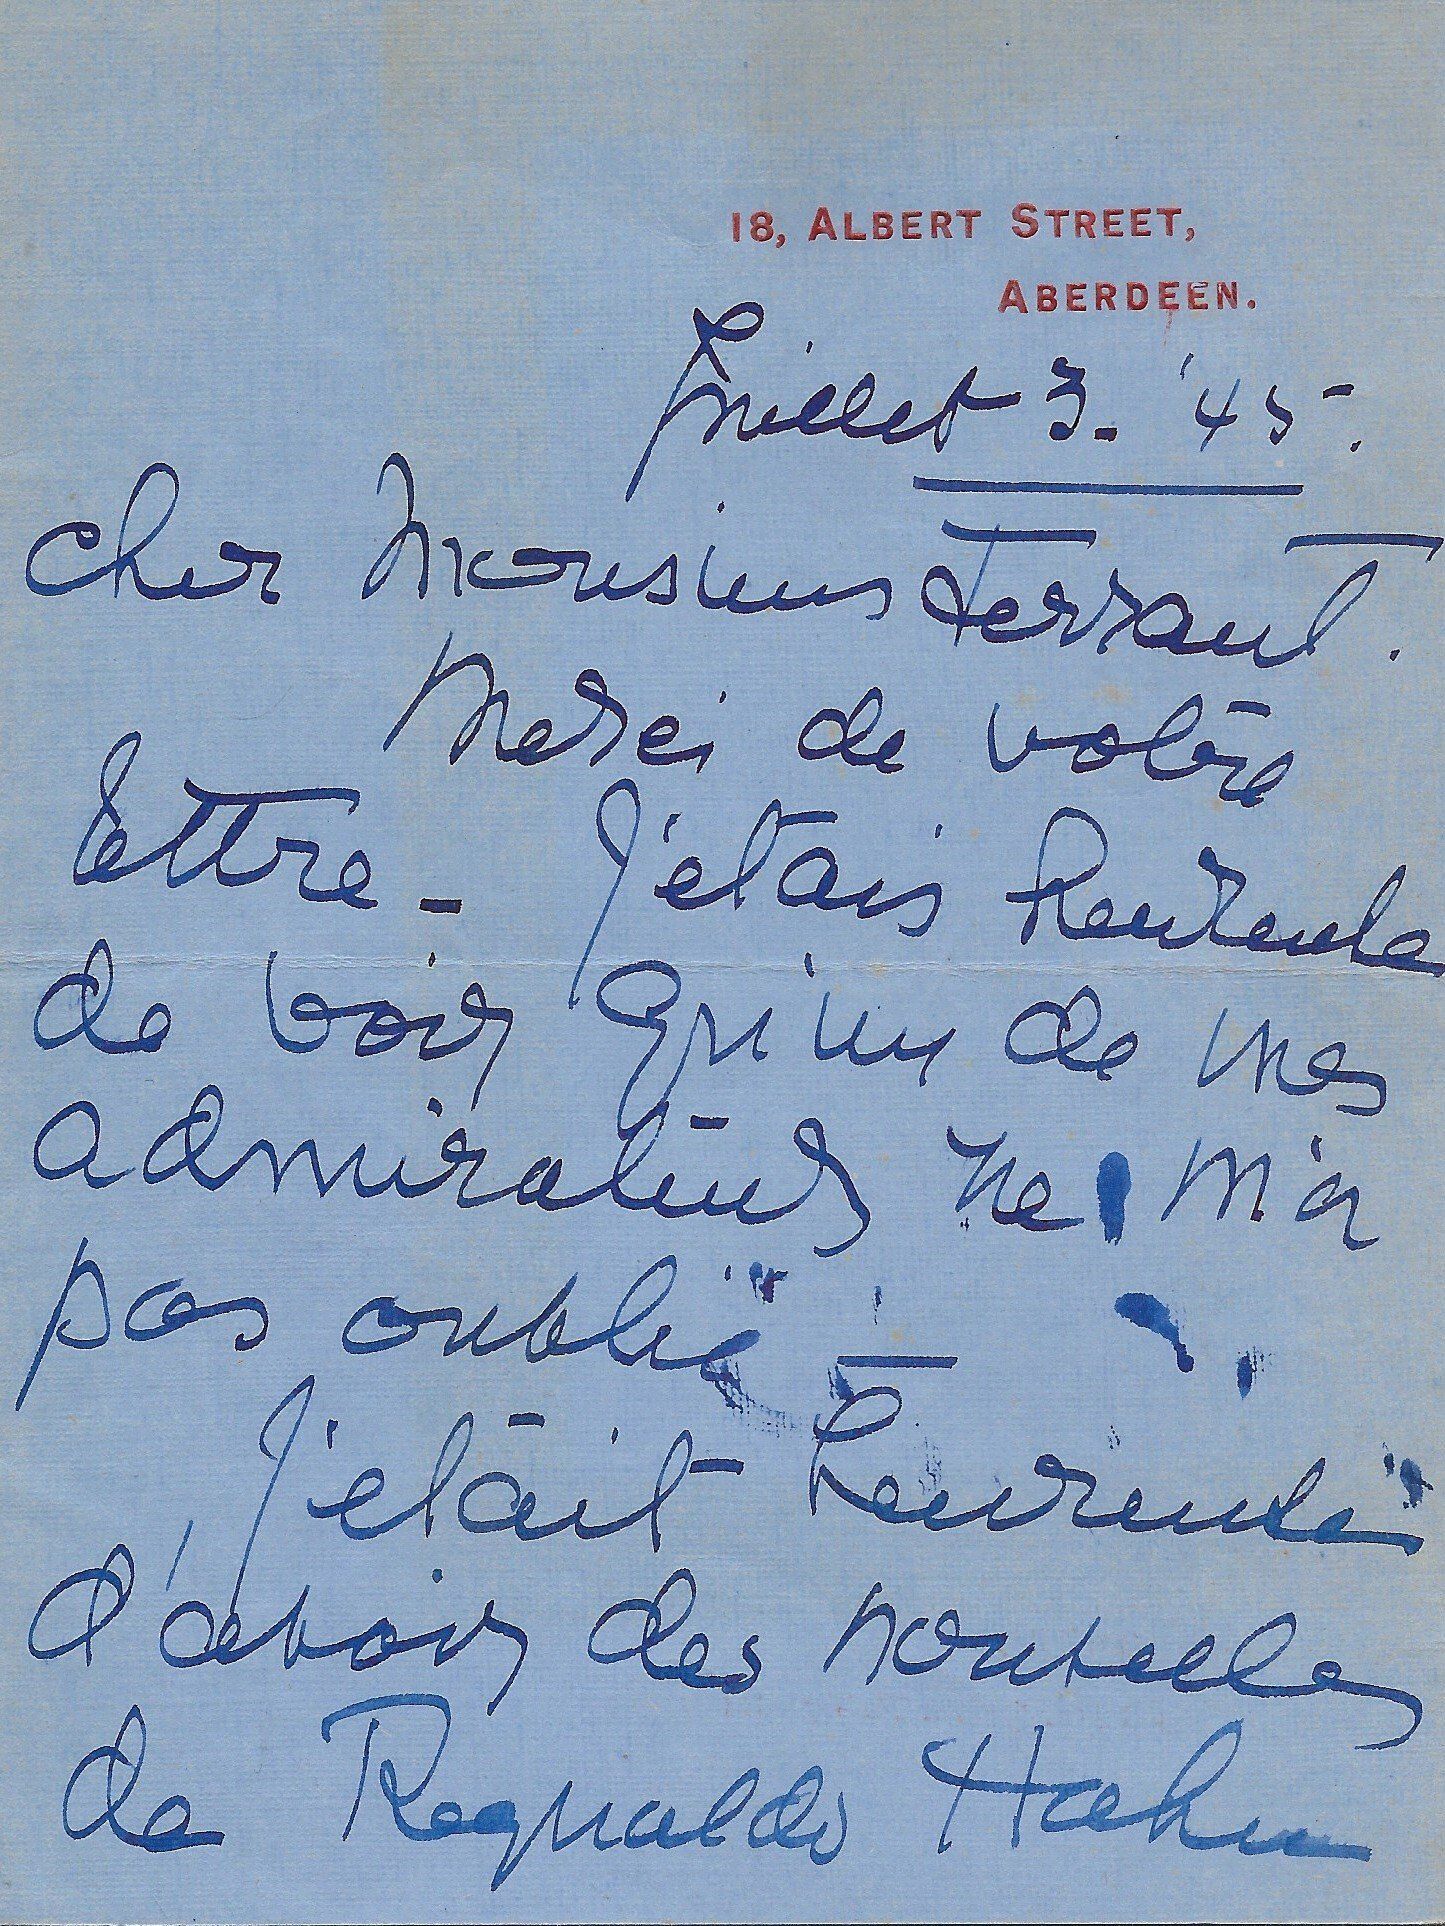 18, ALBERT STREET,
ABERDEEN.
Juillet 3. '45.
Cher Monsieur Ferrant.
Merci de votre
lettre – J'etais heureuse
de voir qu'un de mes
admirateurs ne m'a
pas oublié –
J'etait heureuse
d'avoir des nouvelles
de Reynaldo Hahn